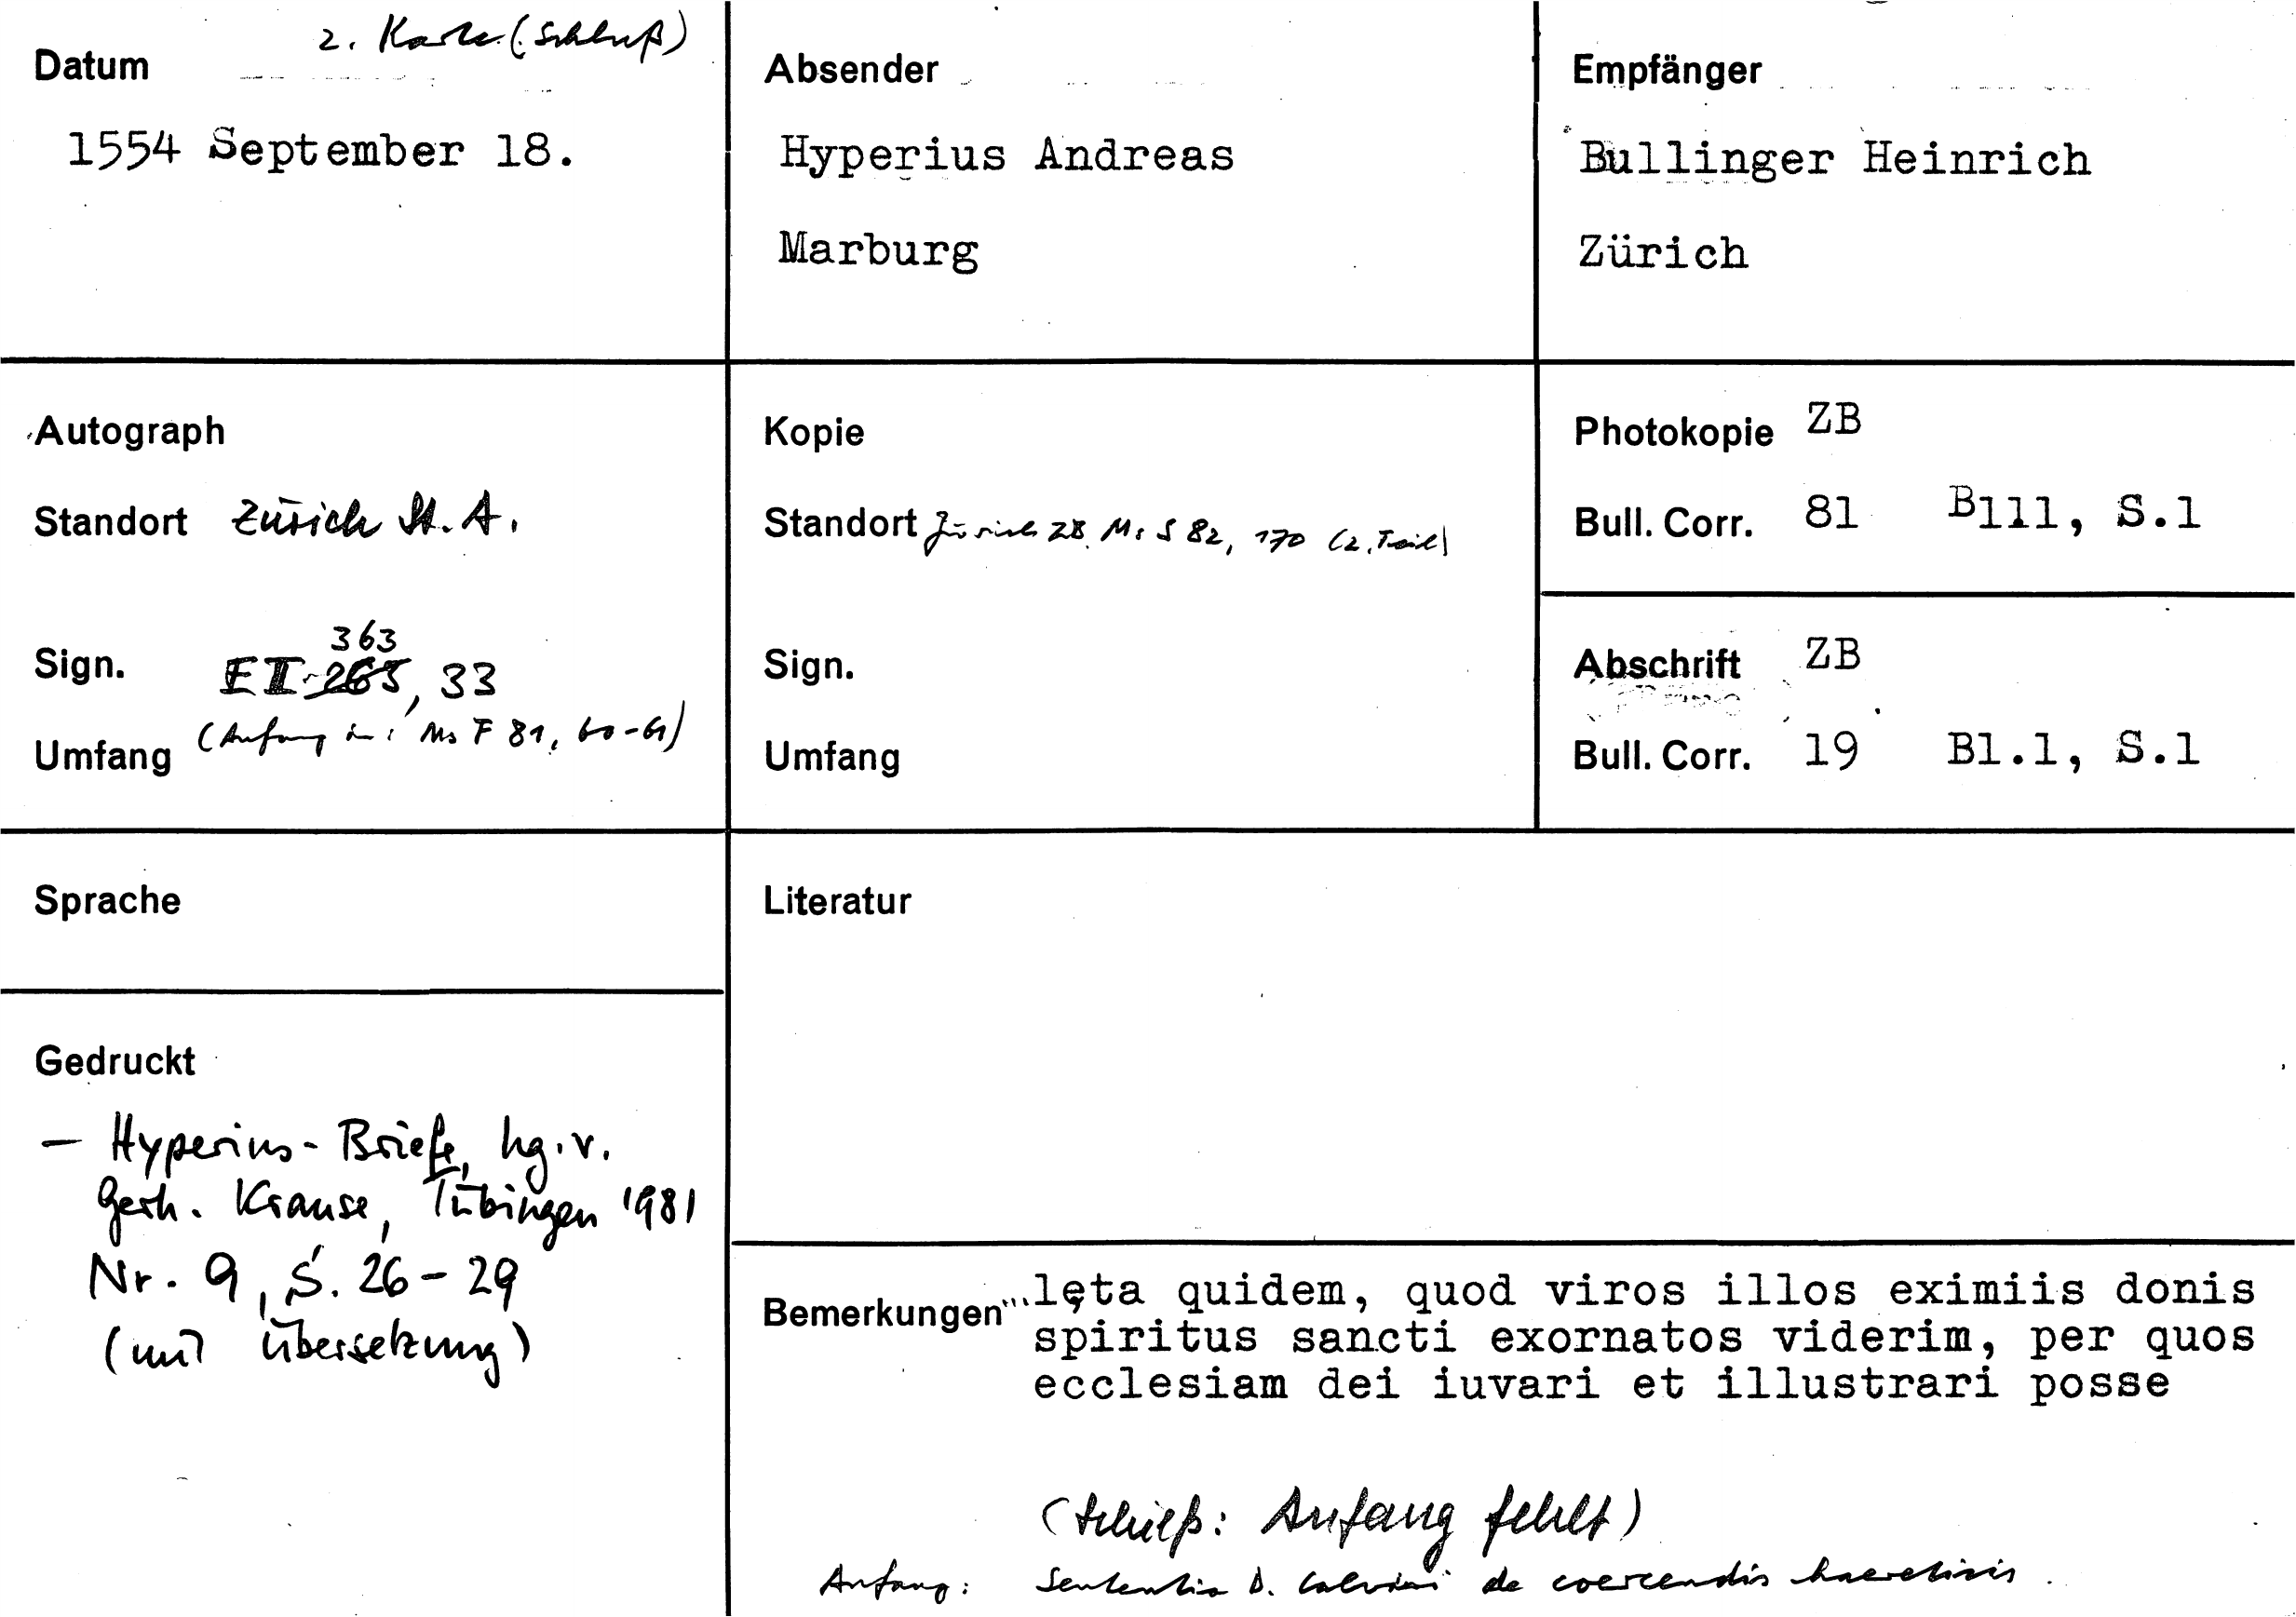 Datum
2. Karte (Schluß)
1554 September 18.
Absender
Hyperius Andreas
Marburg
Empfänger
Bullinger Heinrich
Zürich
Autograph
Standort Zürich St. A.
363
Sign. E II 265, 33
(Anfang in: Ms F 81, 60-61)
Umfang
Kopie
Standort Zürich ZB. Ms S 82, 170 (2. Teil)
Sign.
Umfang
Photokopie ZB
Bull. Corr. 81 B111, S.1
Abschrift ZB
Bull. Corr. 19 Bl.1, S.1
Sprache
Gedruckt
— Hyperius-Briefe, hg. v.
Gerh. Krause, Tübingen 1981
Nr. 9, S. 26-29
(mit Übersetzung)
Literatur
Bemerkungen ...lęta quidem, quod viros illos eximiis donis
spiritus sancti exornatos viderim, per quos
ecclesiam dei iuvari et illustrari posse
(Schieß: Anfang fehlt)
Anfang: Sententia D. Calvini de coercendis haereticis.